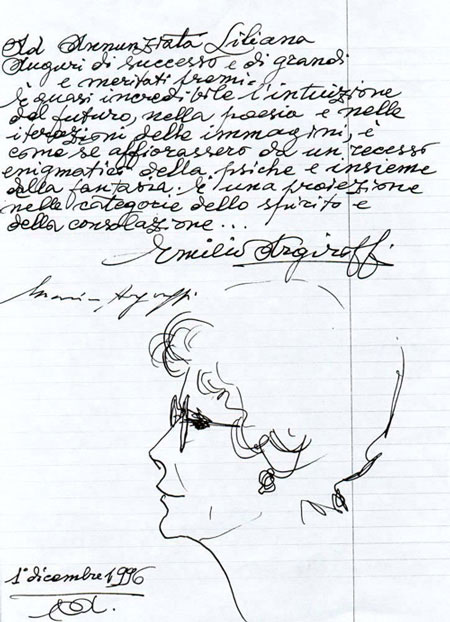 Ad Annunziata Liliana
Auguri di successo e di grandi
e meritati premi.
È quasi incredibile l'intuizione
del futuro, nella poesia e nelle
iterazioni delle immagini, è
come se affiorassero da un recesso
enigmatico della psiche e insieme
della fantasia. È una proiezione
nelle categorie dello spirito e
della consolazione...
Emilio Argiroffi
Argiroffi
1° dicembre 1996